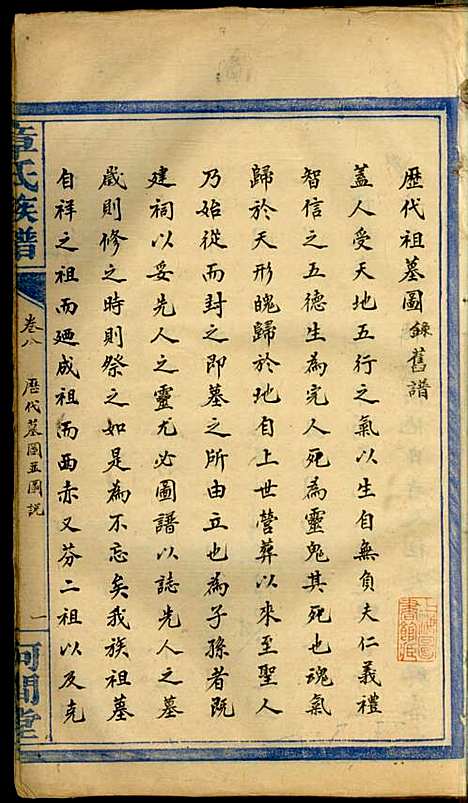 歷代祖墓圖 錄舊譜
蓋人受天地五行之氣以生自無負夫仁義禮
智信之五德生為完人死為靈鬼其死也魂氣
歸於天形魄歸於地自上世營葬以來至聖人
乃始從而封之即墓之所由立也為子孫者既
建祠以妥先人之靈尤必圖譜以誌先人之墓
歲則修之時則祭之如是為不忘矣我族祖墓
自祥之祖而廼成祖而西赤又芬二祖以及克
章氏族譜
卷八
歷代墓圖並圖說
一
河間堂